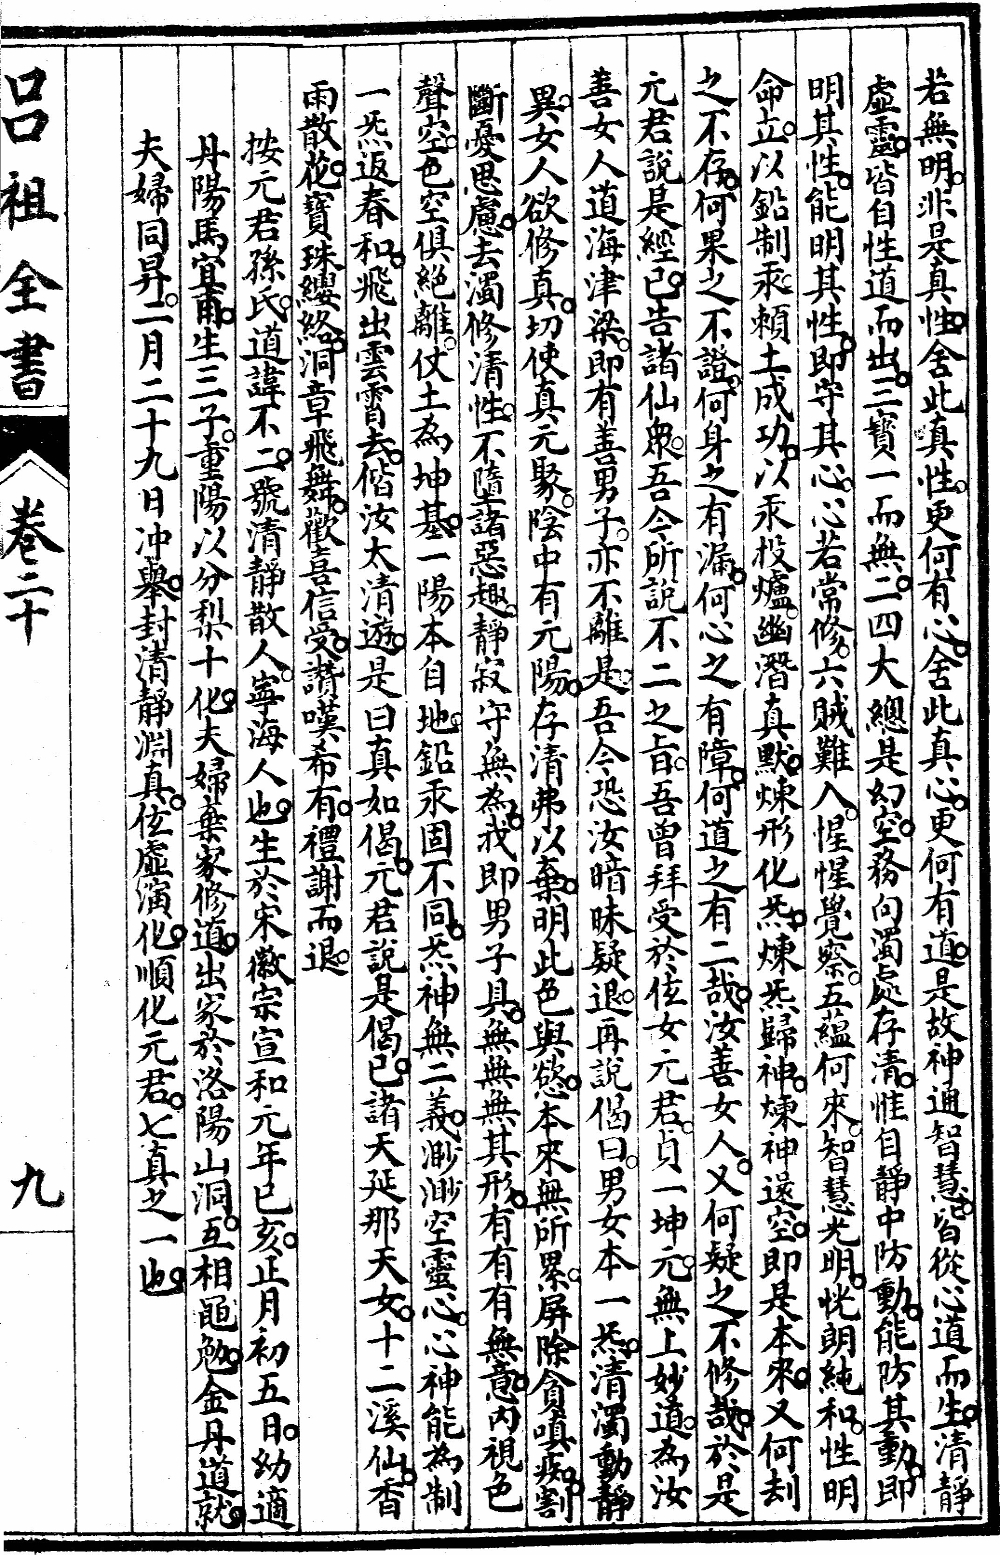 若無明。非是真性。舍此真性。更何有心。舍此真心。更何有道。是故神通智慧。皆從心道而生。清靜
虛靈。皆自性道而出。三寶一而無二。四大總是幻空。務向濁處存清。惟自靜中防動。能防其動。即
明其性。能明其性。即守其心。心若常修。六賊難入。惺惺覺察。五蘊何來。智慧光明。恍朗純和。性明
命立。以鉛制汞。賴土成功。以汞投爐。幽潛真默。煉形化炁。煉炁歸神。煉神還空。即是本來。又何刦
之不存。何果之不證。何身之有漏。何心之有障。何道之有二哉。汝善女人。又何疑之不修哉。於是
元君說是經已。告諸仙衆。吾今所說不二之旨。吾曾拜受於伭女元君。貞一坤元。無上妙道。為汝
善女人道海津梁。即有善男子。亦不離是。吾今恐汝暗昧疑退。再說偈曰。男女本一炁。清濁動靜
異。女人欲修真。切使真元聚。陰中有元陽。存清弗以棄。明此色與慾。本來無所累。屏除貪嗔痴。割
斷憂思慮。去濁修清性。不墮諸惡趣。靜寂守無為。我即男子具。無無無其形。有有有無意。內視色
聲空。色空俱絕離。仗土為坤基。一陽本自地。鉛汞固不同。炁神無二義。渺渺空靈心。心神能為制
一炁返春和。飛出雲霄去。偕汝太清遊。是曰真如偈。元君說是偈已。諸天延那天女。十二溪仙。香
雨散花。寶珠纓絡。洞章飛舞。歡喜信受。讚嘆希有。禮謝而退。
按元君孫氏。道諱不二。號清靜散人。寧海人也。生於宋徽宗宣和元年己亥。正月初五日。幼適
丹陽馬宜甫。生三子。重陽以分梨十化。夫婦棄家修道。出家於洛陽山洞。互相黽勉。金丹道就。
夫婦同昇。二月二十九日冲舉。封清靜淵真。伭虛演化。順化元君。七真之一也。
呂祖全書
卷二十
九